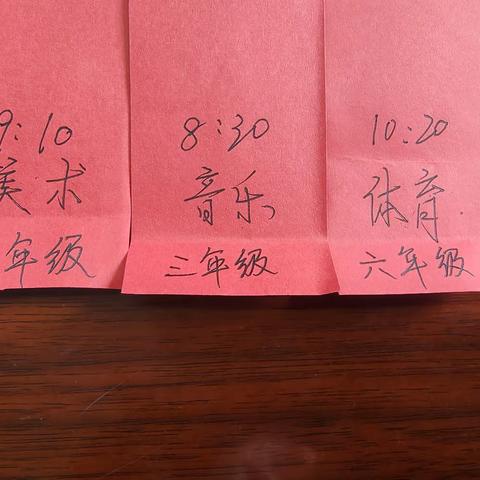 9:10
美术
年级
8:30
音乐
三年级
10:20
体育
六年级